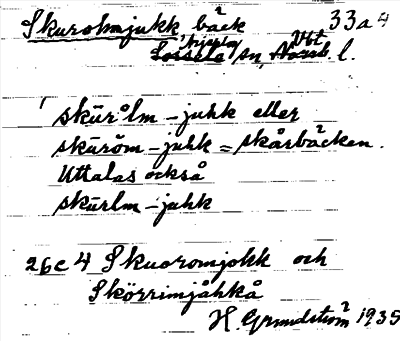 Skurolmjukk bäck 33a4
Sorsele sn, Vbt l.
skūrålm-juhk eller
skūrōm-juhk = skårbäcken.
Uttalas också
skūrlm-juhk
26c4 Skuoromjokk och
Skörrimjåhkå
H. Grundström 1935